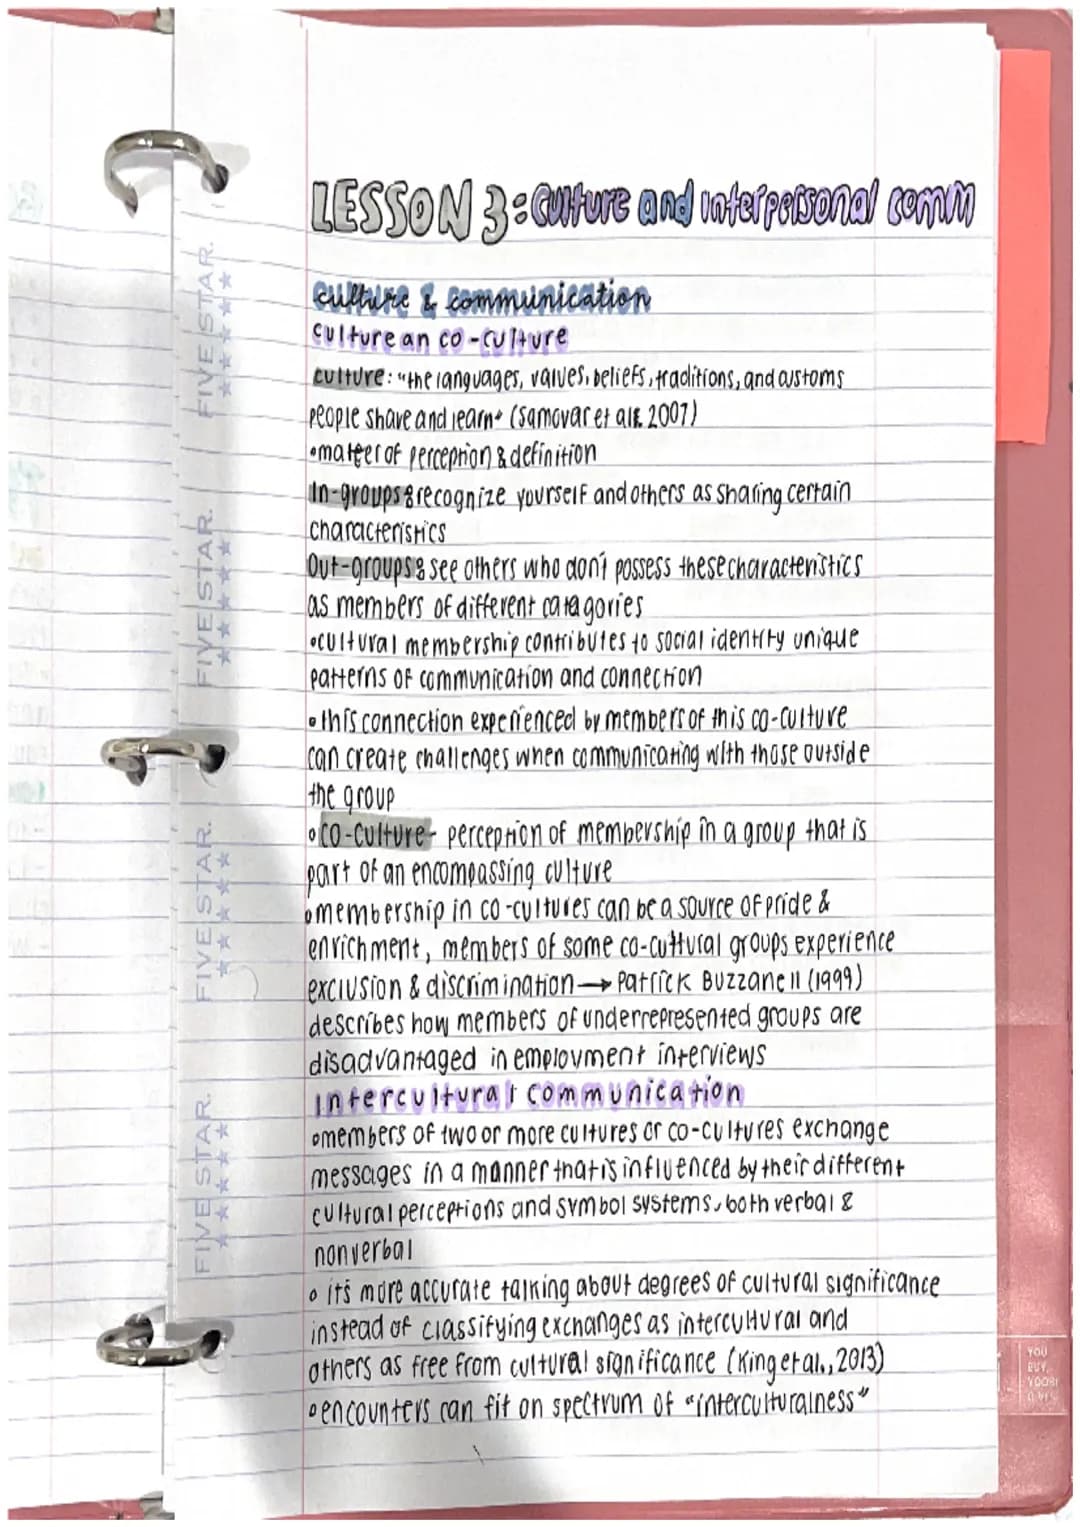 LESSON 3: Culture and interpersonal comm
culture & communication
culture an co-culture
culture: "the languages, values, beliefs, traditions, and customs
people share and learn" (Samovar et al., 2007)
•matter of perception & definition
In-groups: recognize yourself and others as sharing certain
characteristics
Out-groups: see others who don't possess these characteristics
as members of different catagories
•cultural membership contributes to social identity unique
patterns of communication and connection
•this connection experienced by members of this co-culture
can create challenges when communicating with those outside
the group
•co-culture- perception of membership in a group that is
part of an encompassing culture
•membership in co-cultures can be a source of pride &
enrichment, members of some co-cultural groups experience
exclusion & discrimination → Patrick Buzzanell (1999)
describes how members of underrepresented groups are
disadvantaged in employment interviews
intercultural communication
•members of two or more cultures or co-cultures exchange
messages in a manner that is influenced by their different
cultural perceptions and symbol systems, both verbal &
nonverbal
• its more accurate talking about degrees of cultural significance
instead of classifying exchanges as intercultural and
others as free from cultural significance (King et al., 2013)
•encounters can fit on spectrum of "interculturalness"
FIVE STAR.
FIVE STAR.
FIVE STAR.
FIVE STAR.
YOU
BUY,